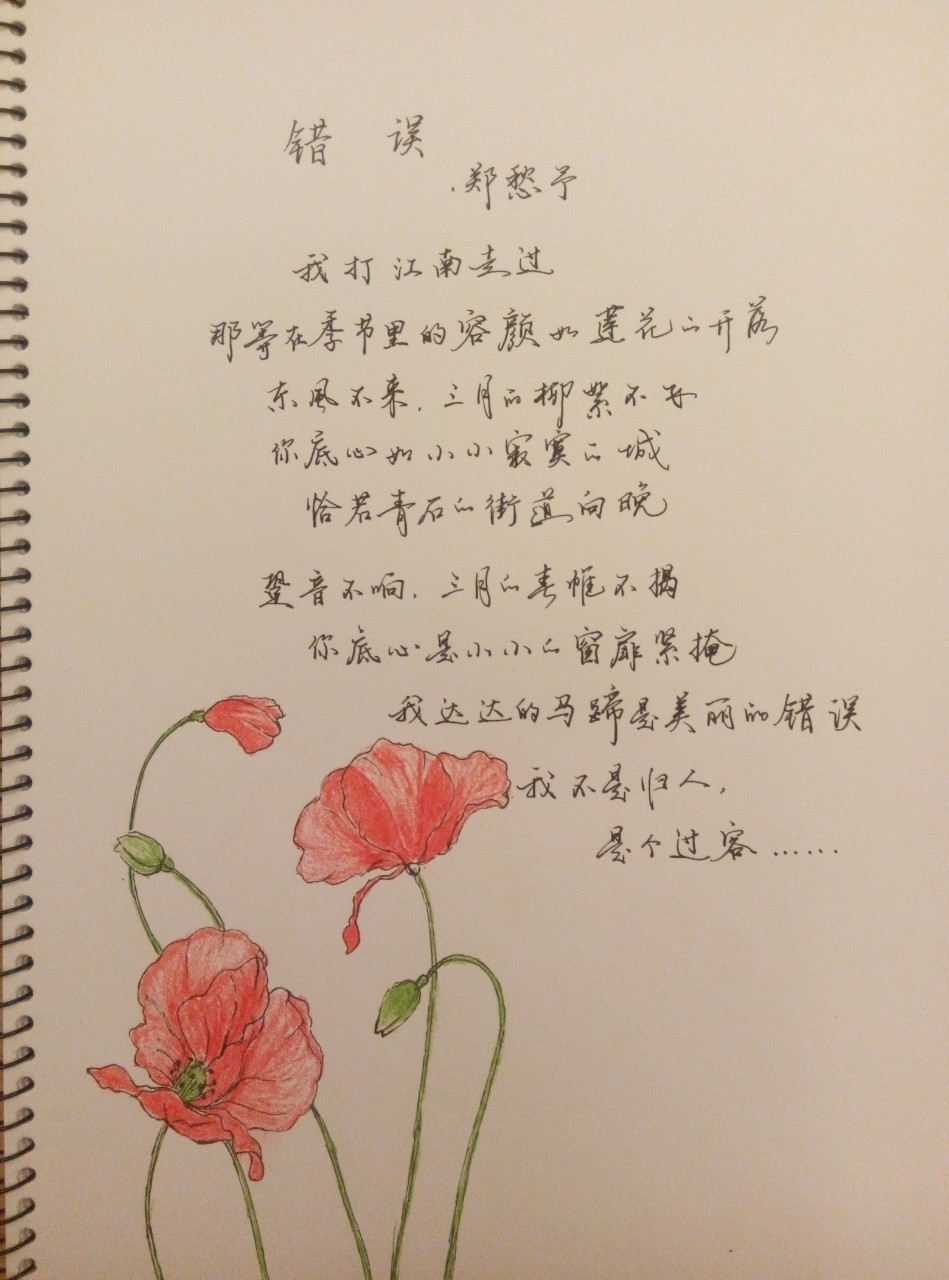 错 误
·郑愁予
我打江南走过
那等在季节里的容颜如莲花的开落
东风不来,三月的柳絮不飞
你底心如小小寂寞的城
恰若青石的街道向晚
跫音不响,三月的春帷不揭
你底心是小小的窗扉紧掩
我达达的马蹄是美丽的错误
我不是归人,
是个过客……